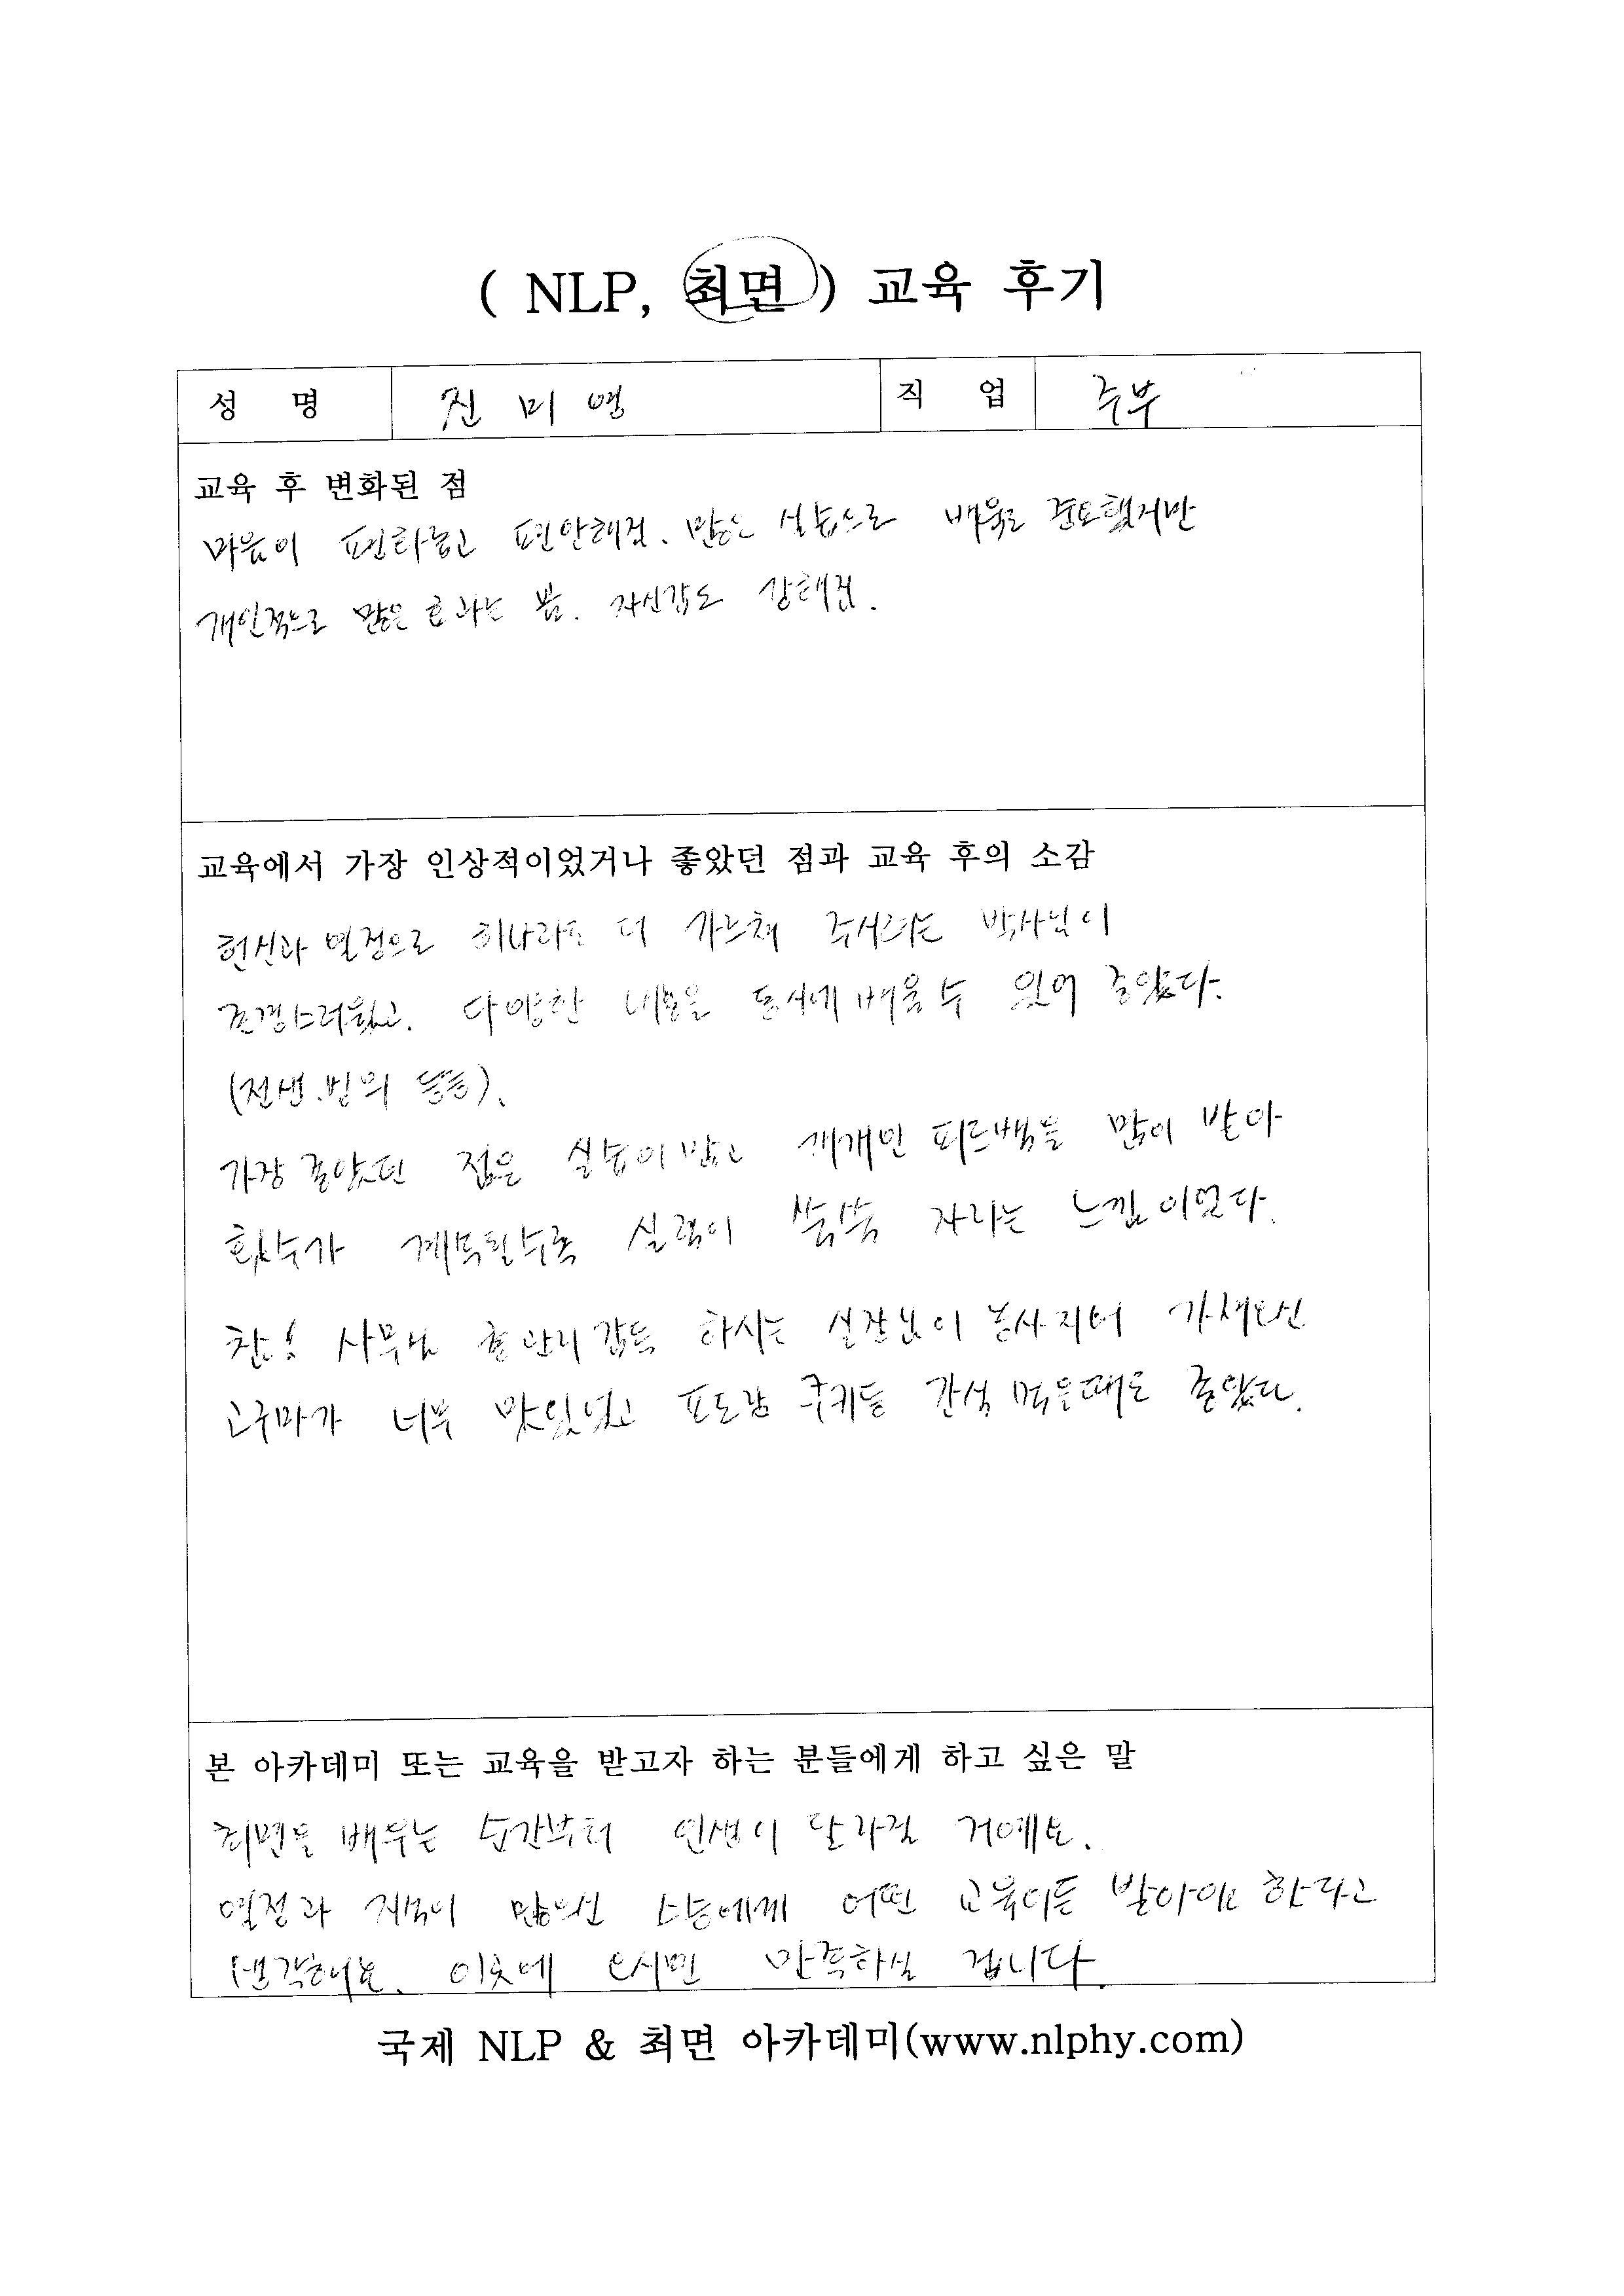 ( NLP, 최면 ) 교육 후기
성 명 진 미 영 직 업 주부
교육 후 변화된 점
마음이 평화롭고 편안해짐. 많은 실습으로 배움도 중요했지만
개인적으로 많은 효과는 봄. 자신감도 강해짐.
교육에서 가장 인상적이었거나 좋았던 점과 교육 후의 소감
헌신과 열정으로 하나라도 더 가르쳐 주시려는 박사님이
존경스러웠고. 다양한 내용을 동시에 배울 수 있어 좋았다.
(전생.빙의 등등).
가장 좋았던 점은 실습이 많고 개개인 피드백을 많이 받아
횟수가 계속될수록 실력이 쑥쑥 자라는 느낌이었다.
참! 사무실 총관리 감독 하시는 실장님이 농사지어 가져오신
고구마가 너무 맛있었고 포도랑 쿠키등 간식 먹은때도 좋았다.
본 아카데미 또는 교육을 받고자 하는 분들에게 하고 싶은 말
최면을 배우는 순간부터 인생이 달라질 거예요.
열정과 지식이 많으신 스승에게 어떤 교육이든 받아야 한다고
생각해요. 이곳에 오시면 만족하실 겁니다.
국제 NLP & 최면 아카데미(www.nlphy.com)